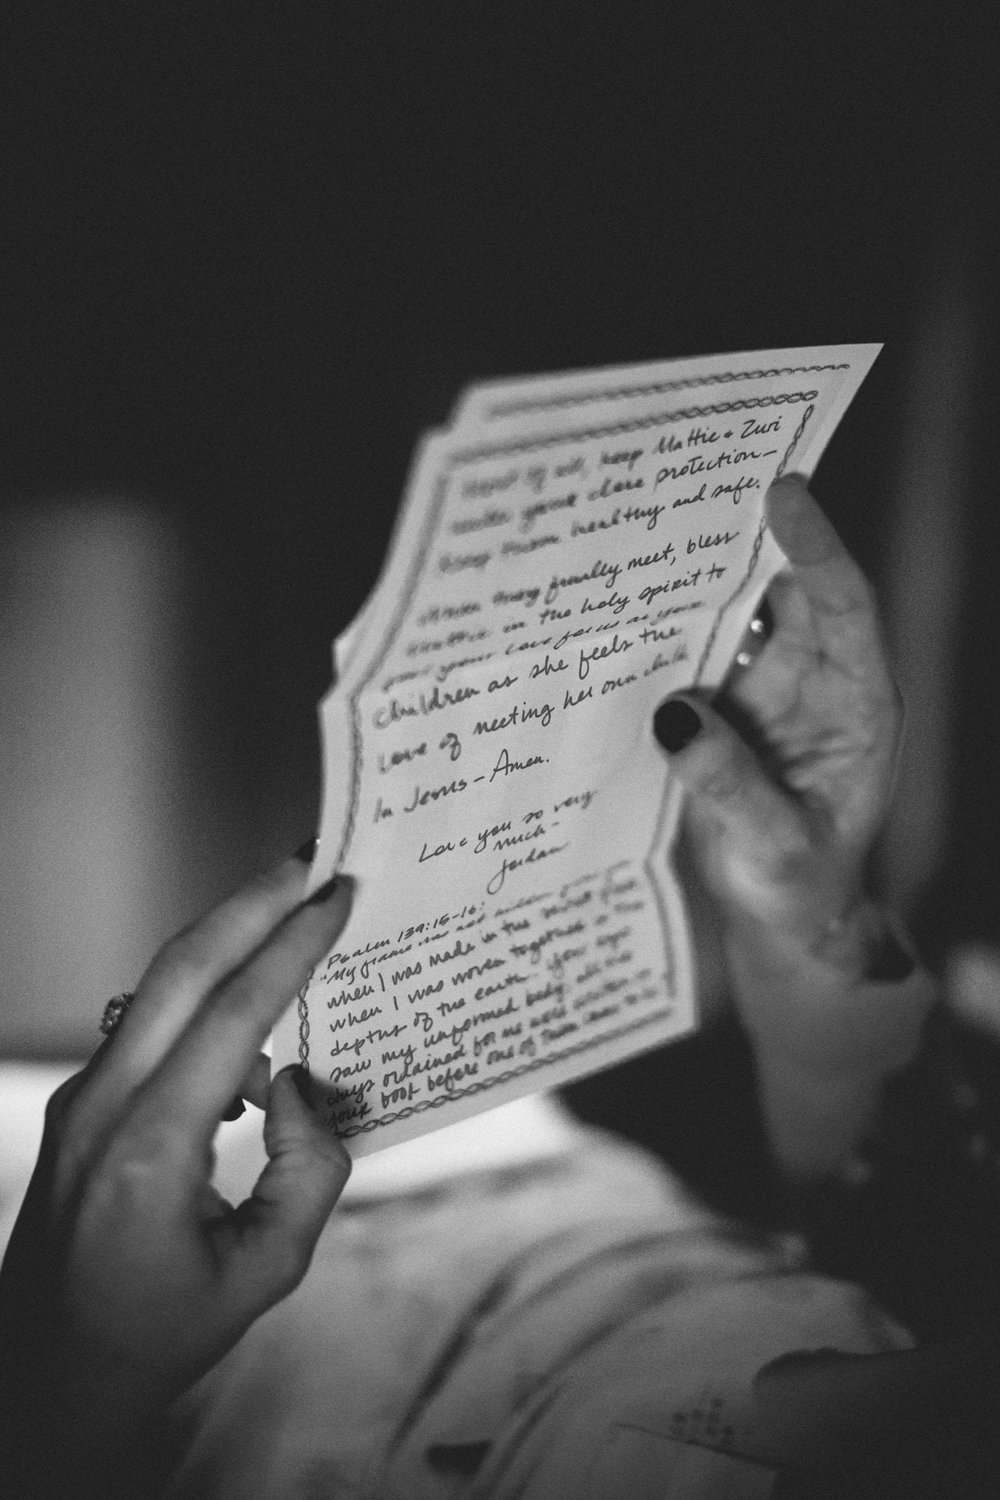 Most of all, keep Mattie + Zuri
under your close protection—
keep them healthy and safe.
When they finally meet, bless
Mattie in the holy spirit to
your love for us as your
children as she feels the
love of meeting her own child
In Jesus – Amen.
Love you so very
much –
Jordan
Psalm 139:15-16:
"My frame was not hidden from you
when I was made in the secret place
when I was woven together in the
depths of the earth. Your eyes
saw my unformed body, all the
days ordained for me were written in
your book before one of them came to be